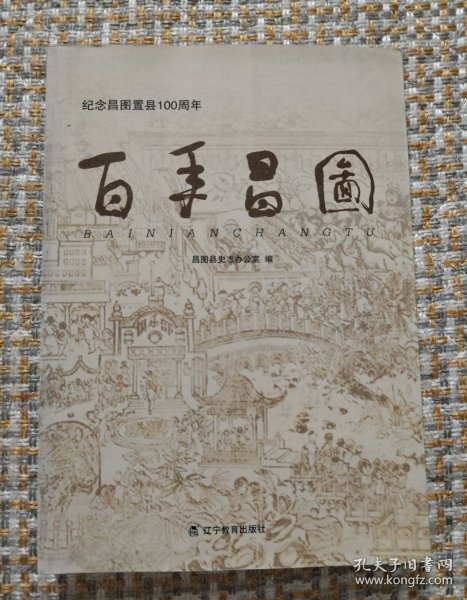 纪念昌图置县100周年
百年昌圖
BAINIANCHANGTU
昌图县史志办公室 编
辽宁教育出版社
孔夫子旧书网
www.kongfz.com